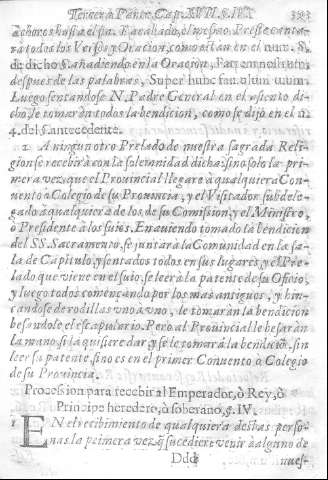 Tercera Parte. Cap. XVII. §. IV.
à chores hasta el pa. E acabado, el mesmo Preste canta-
rà todos los Versos y Oracion, como estan en el num. 8.
de dicho §. añadiendo en la Oracion, Patrem nostrum,
despues de las palabras, Super hunc famulum tuum.
Luego sentandose N. Padre General en el asiento di-
cho, le tomaràn todos la bendicion, como se dijo en el n.
4. del §. antecedente.
2 A ningun otro Prelado de nuestra sagrada Reli-
gion se recebirà con la solemnidad dicha: sino solo la pri-
mera vez, que el Provincial llegare à qualquiera Con-
vento ò Colegio de su Provincia, y el Visitador subdele-
gado à qualquiera de los de su Comission, y el Ministro,
ò Presidente à los suios. En auiendo tomado la bendicion
del SS. Sacramento, se juntarà la Comunidad en la sa-
la de Capitulo, y sentados todos en sus lugares, y el Pre-
lado que viene en el suio, se leerà la patente de su Oficio,
y luego todos començando por los mas antiguos, y hin-
candose de rodillas vno à vno, le tomaràn la bendicion
besandole el escapulario. Pero al Provincial le besaràn
la mano, si la quisiere dar, y se le tomarà la bendicion sin
leer su patente, sino es en el primer Convento ò Colegio
de su Provincia.
Procession para recebir al Emperador, ò Rey, ò
Principe heredero, ò soberano, §. IV.
1 EN el recibimiento de qualquiera destas perso-
nas la primera vez, q̃ sucediere venir à alguno de
Ddd nues-